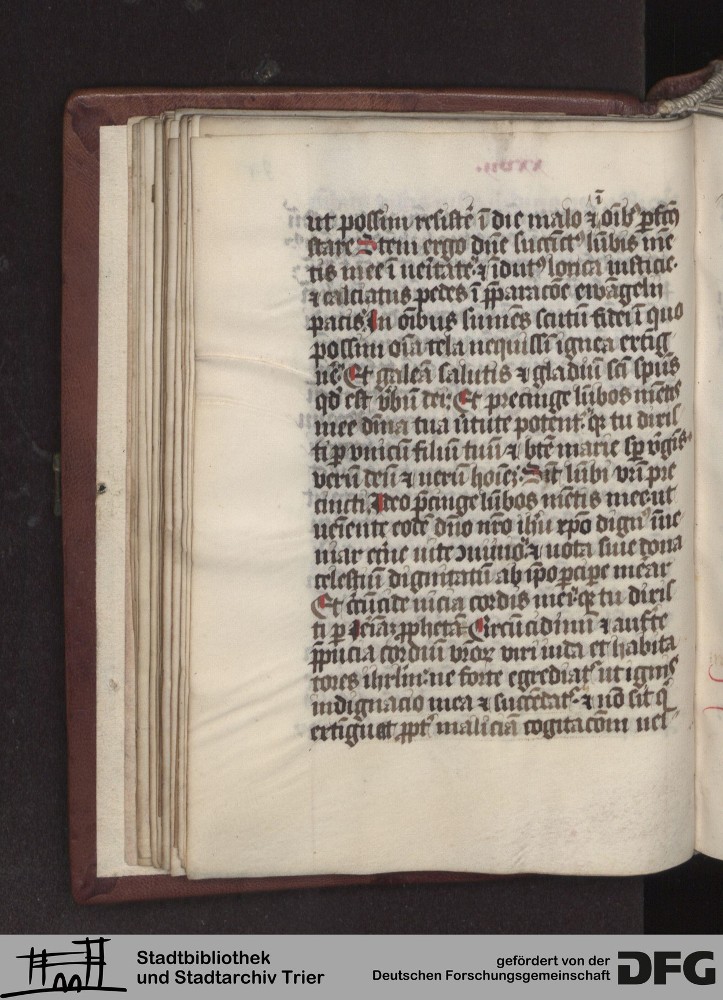 ut possim resistē ī die malo ⁊ ī oībꝰ ꝑfcūs
stare Stem ergo dn̄e succīctꝰ lūbis mē
tis mee ī ueritate ⁊ īdutꝰ lorica iusticie.
⁊ calciatus pedes ī p̄paracōe ewāgelii
pacis. In oībus sumēs scutū fidei ī quo
possim oīa tela nequissī ignea extīg
ūe Et galeā salutis ⁊ gladiū sc̄i spūs
qd̄ est v̄bū dei. Et precinge lūbos mētis
mee dīna tua ūtute potent. qr tu dixis
ti ꝑ vnicū filiū tuū ⁊ btē marie sꝑ v̄gīs
verū deū ⁊ uerū hoīeꝫ. Sīt lūbi vr̄i pre
cincti Ideo p̄cinge lūbos mētis mee ut
ueīente eodē dn̄o nr̄o ihū xp̄o dignꝰ īue
niar
celestiū dignitatū ab ip̄o ꝑcipe mēar
Et circūcide uicia cordis mei qr tu dixis
ti ꝑ Jeīaꝫ ꝓphetā Circūcidimī ⁊ aufte
p̄pucia cordiū vr̄oꝝ viri iuda et habita
tores ihrl̄m ne forte egrediatꝰ ut ignis
indignacio mea ⁊ succēdatꝰ ⁊ nō sit q̄
extīguat ꝓptꝰ maliciā cogitacōm uel
Stadtbibliothek
und Stadtarchiv Trier
gefördert von der
Deutschen Forschungsgemeinschaft
DFG